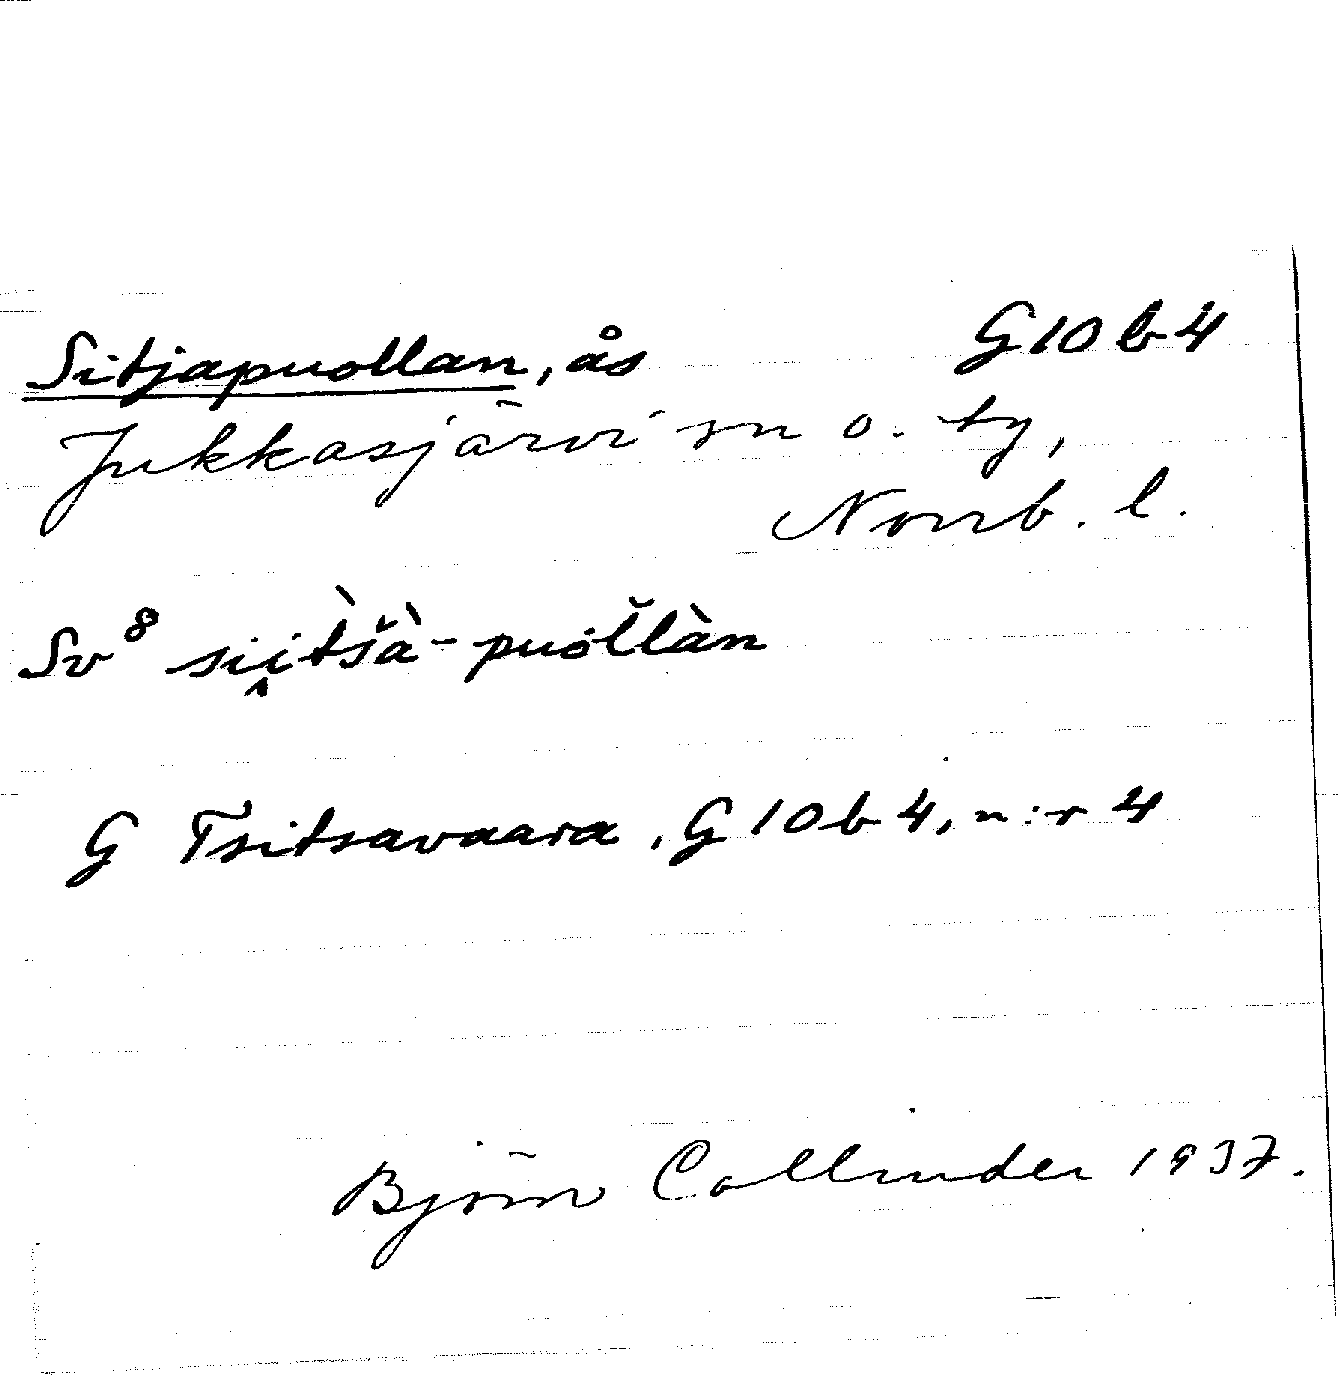 Sitjapuollan, ås G10b4
Jukkasjärvi sn o. ty,
Norrb. l.
Sv⁸ sii̭tš̀à-puoĺ̆làn
G Tsitsavaara, G10b4, n:r 4
Björn Collinder 1937.